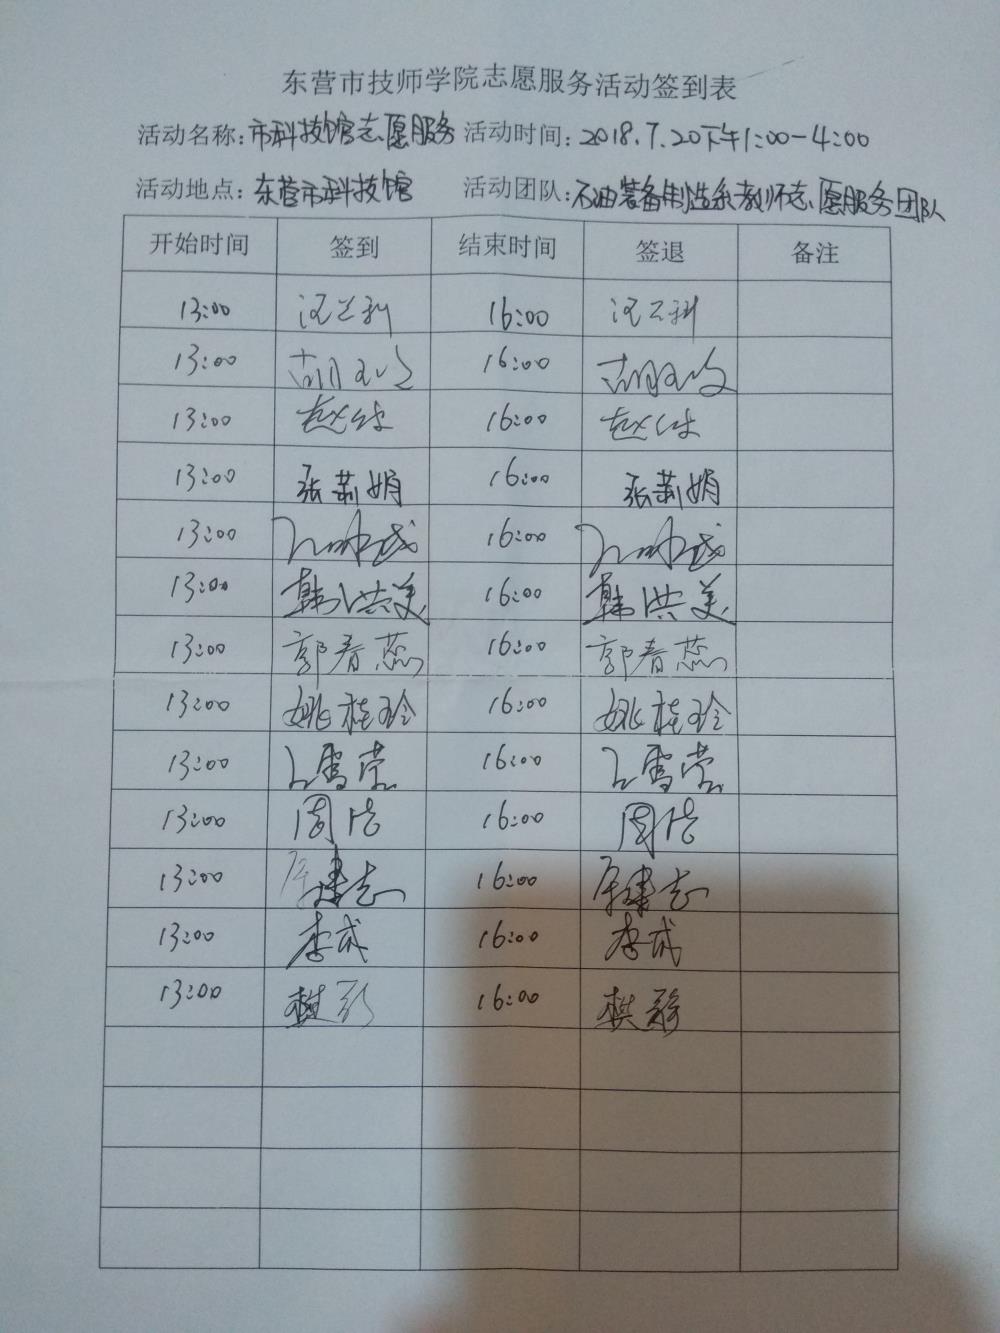 东营市技师学院志愿服务活动签到表
活动名称：市科技馆志愿服务 活动时间：2018.7.20下午1:00-4:00
活动地点：东营市科技馆 活动团队：石油装备制造系教师志愿服务团队
开始时间 签到 结束时间 签退 备注
13:00 16:00
13:00 胡 16:00 胡
13:00 赵 16:00 赵
13:00 张莉娟 16:00 张莉娟
13:00 16:00
13:00 韩洪美 16:00 韩洪美
13:00 郭春蕊 16:00 郭春蕊
13:00 姚桂玲 16:00 姚桂玲
13:00 王雪莹 16:00 王雪莹
13:00 周浩 16:00 周浩
13:00 建志 16:00 建志
13:00 李成 16:00 李成
13:00 樊 16:00 樊